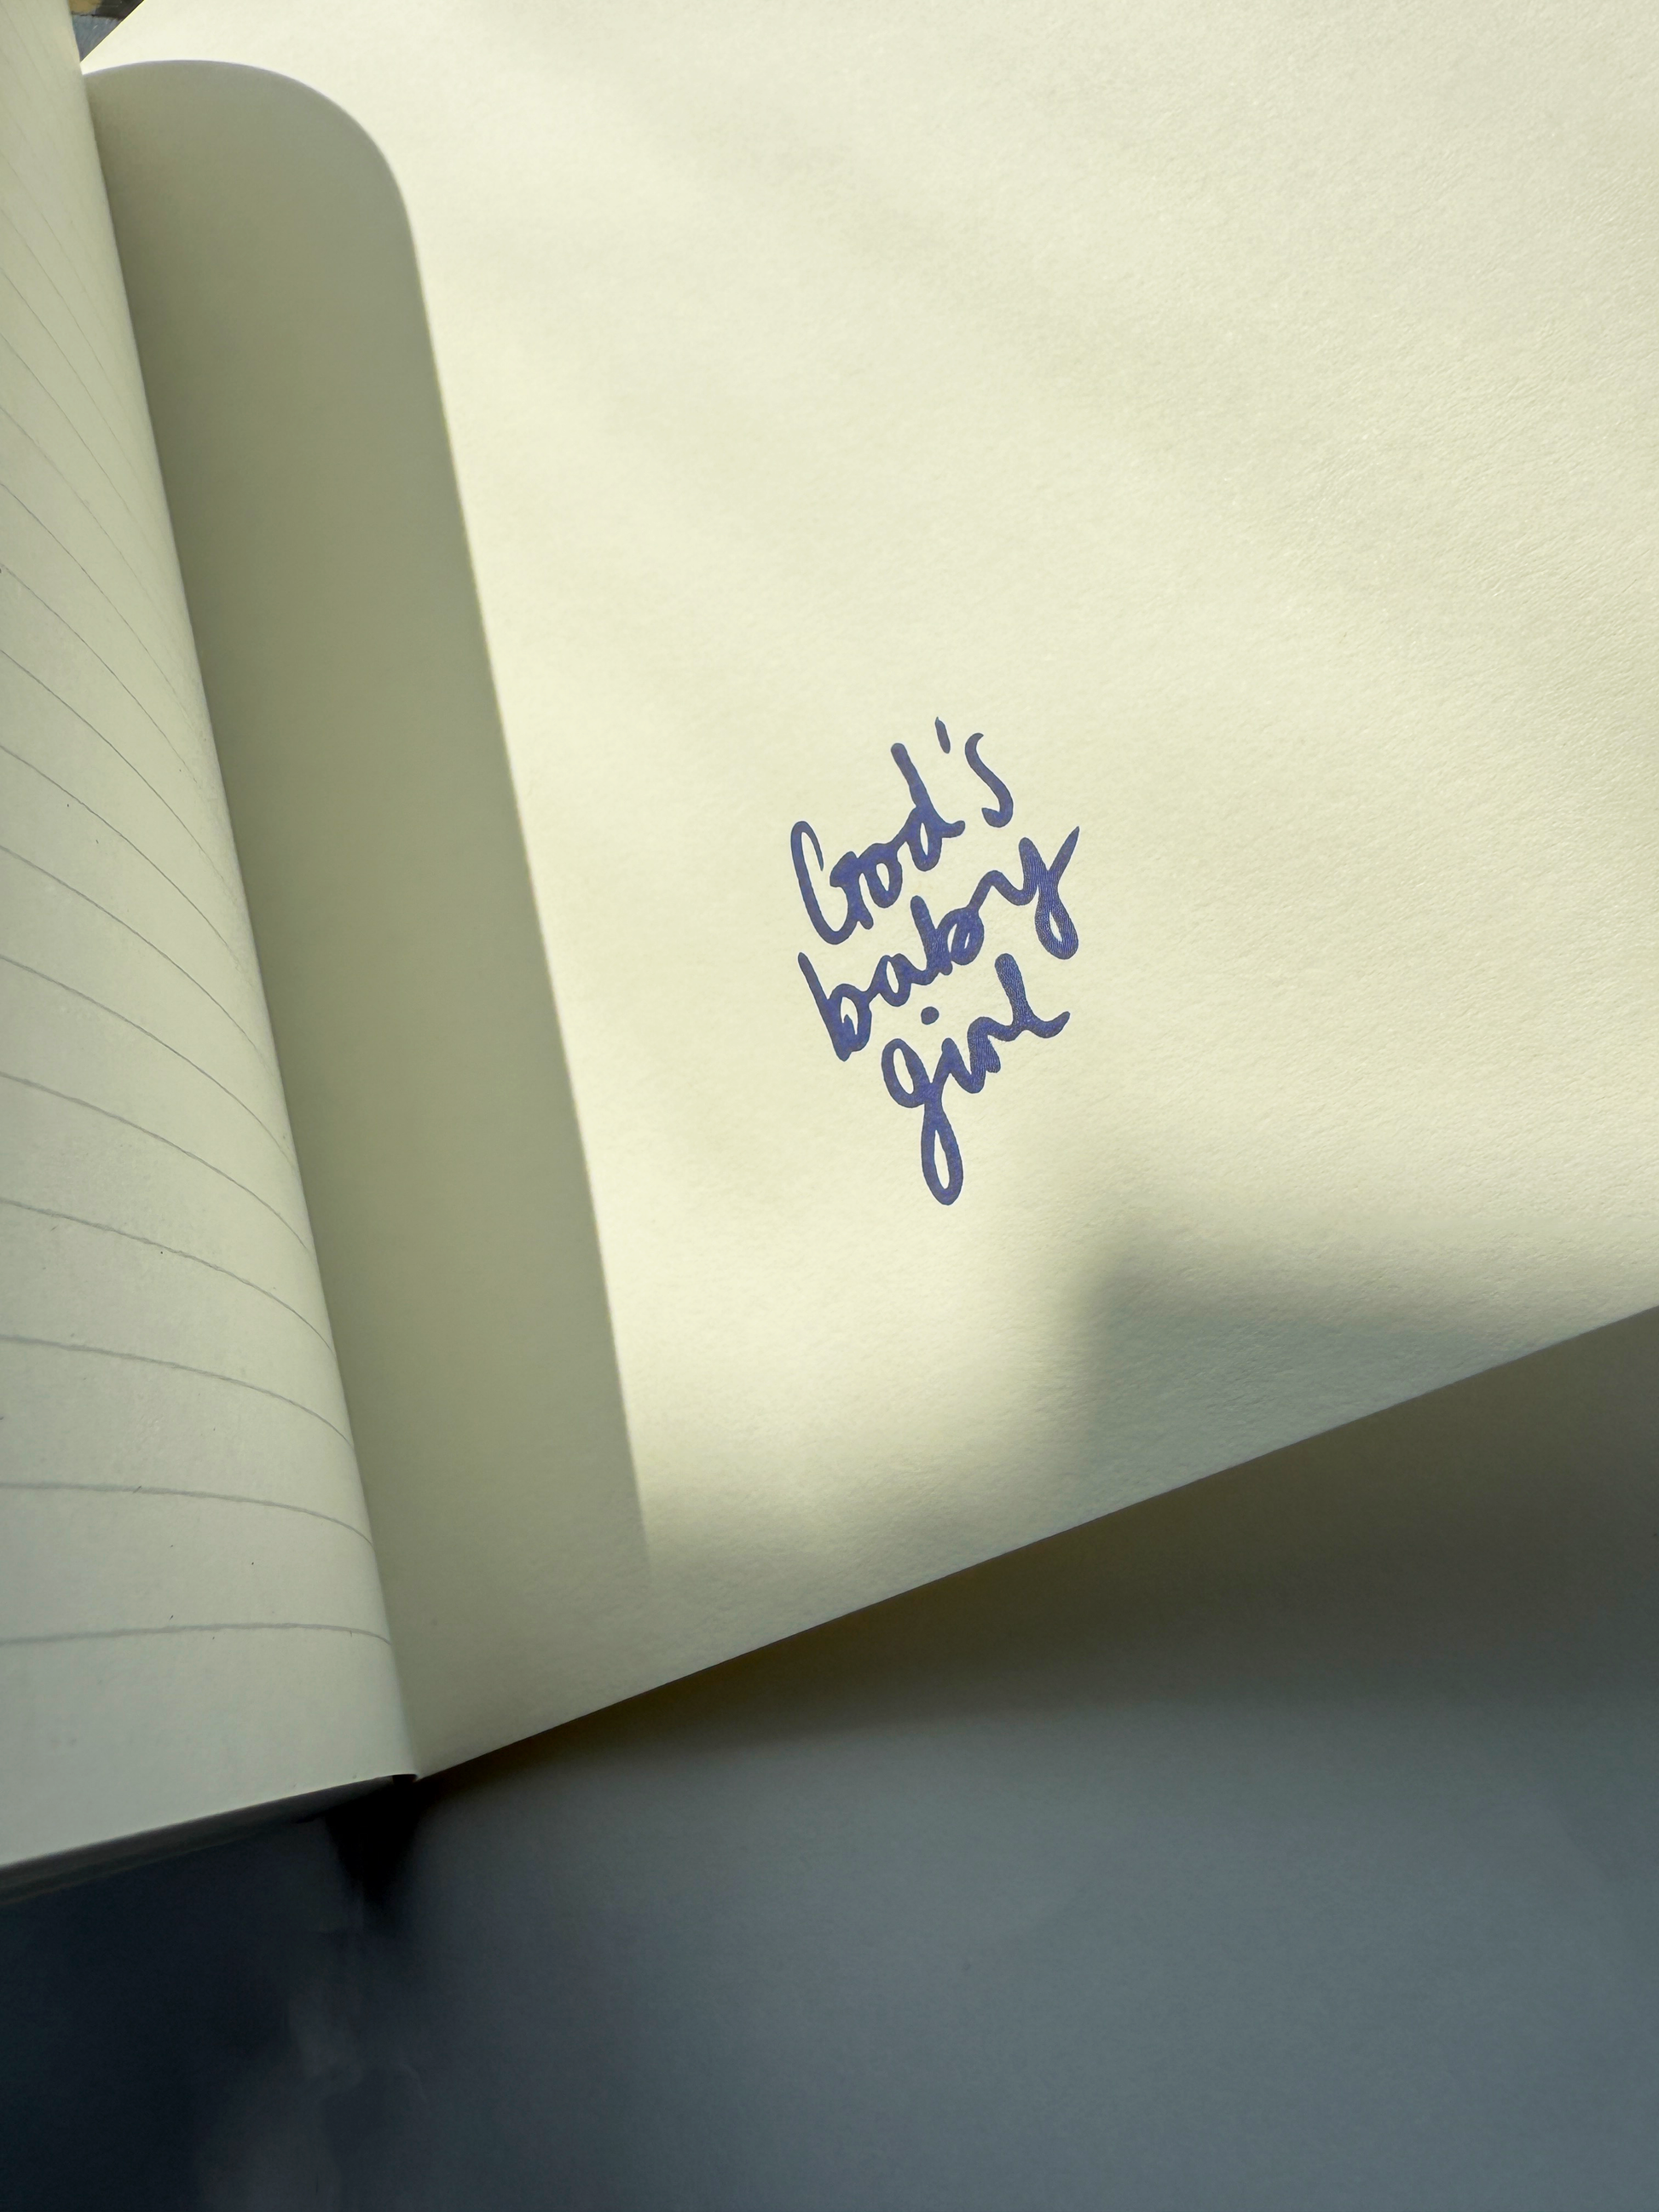 God's
baby
girl